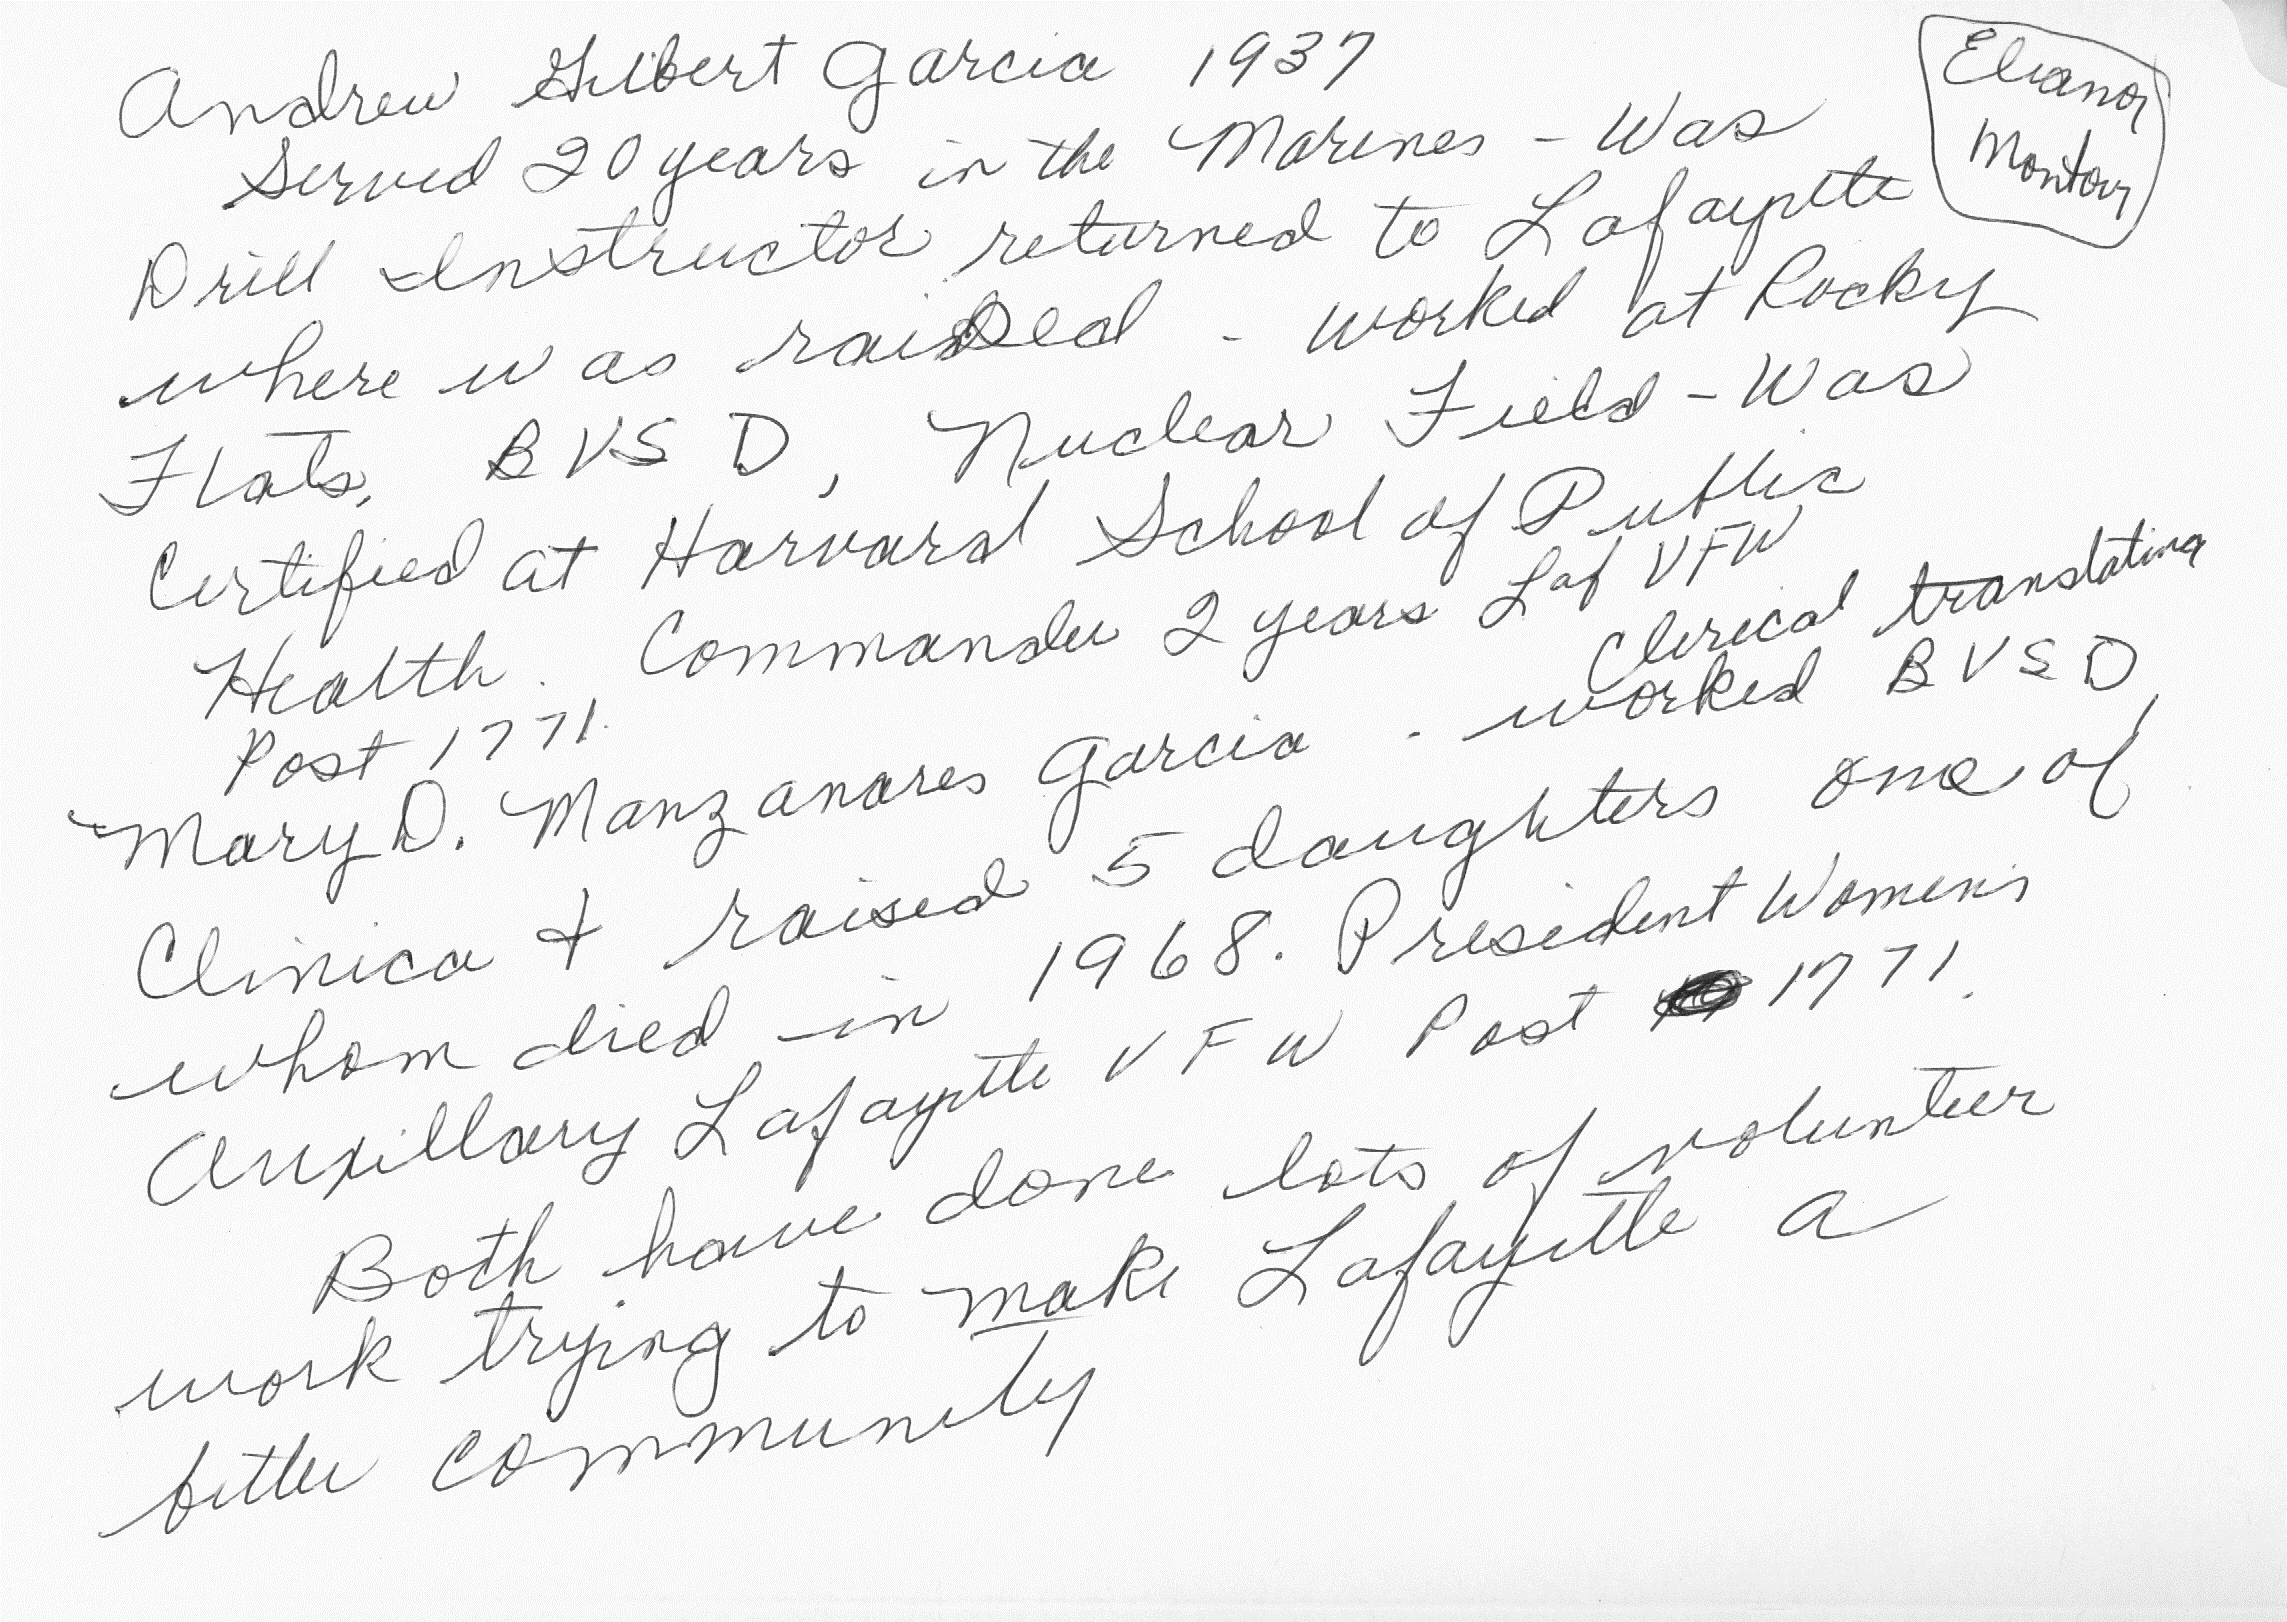 Andrew Gilbert Garcia 1937
Eleanor
Montour
Served 20 years in the Marines - Was
Drill Instructor returned to Lafayette
where was raised - worked at Rocky
Flats, BVSD, Nuclear Field - Was
Certified at Harvard School of Public
Health. Commander 2 years Laf VFW
Post 1771.
Clerical translating
Mary D. Manzanares Garcia - worked BVSD,
Clinica + raised 5 daughters one of
whom died in 1968. President Women's
Auxillary Lafayette VFW Post 1771.
Both have done lots of volunteer
work trying to make Lafayette a
better community